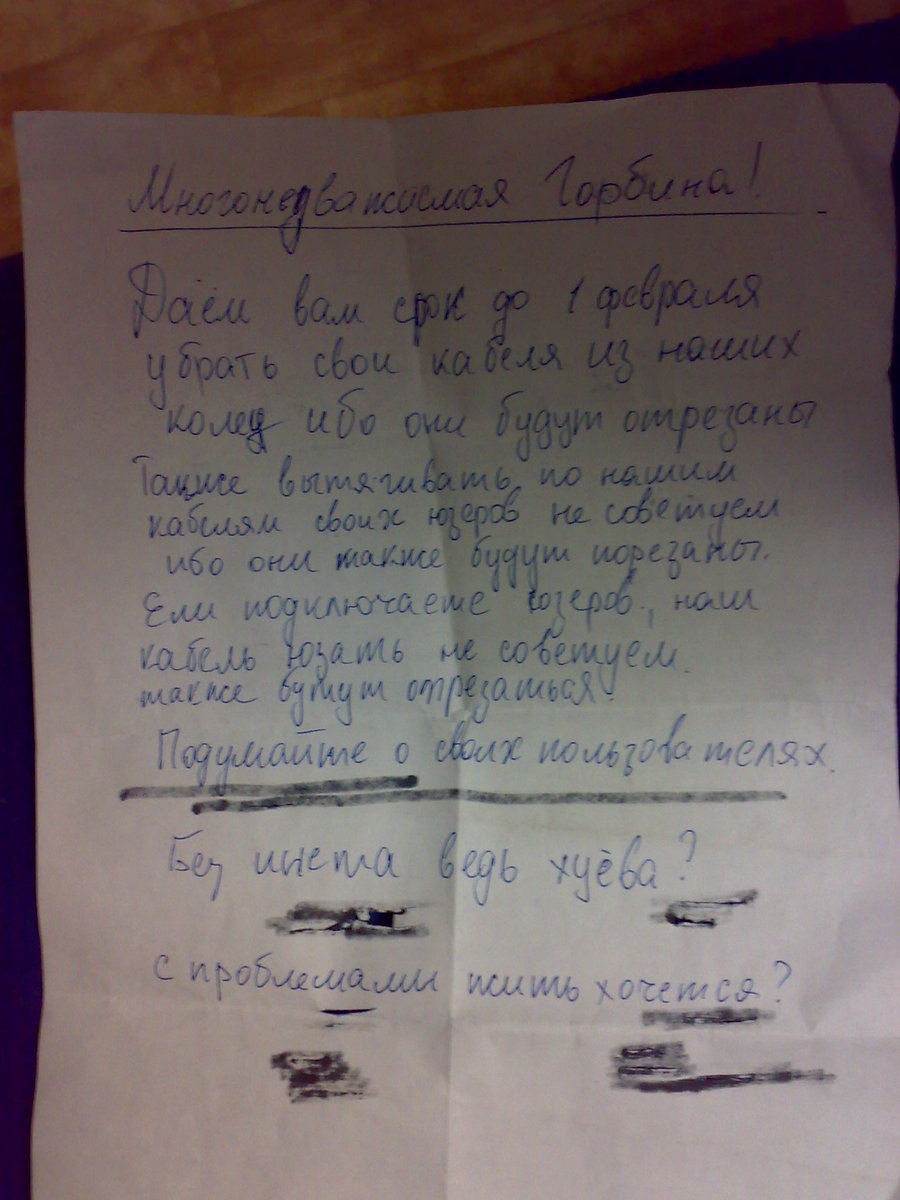 Многонедважаемая Горбина!
Даём вам срок до 1 февраля
убрать свои кабеля из наших
колец ибо они будут отрезаны
Также вытягивать по нашим
кабелям своих юзеров не советуем
ибо они также будут порезаны.
Если подключаете юзеров, наш
кабель юзать не советуем.
также бутут отрезаться.
Подумайте о своих пользователях.
Без инета ведь хуёва?
С проблемами жить хочется?